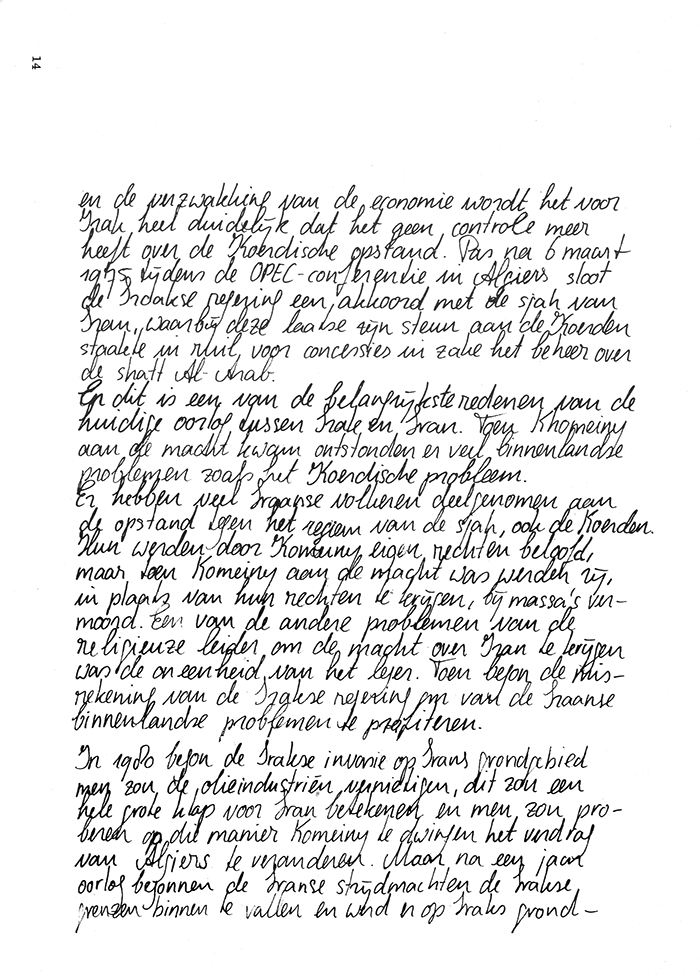 14
en de verzwakking van de economie wordt het voor
Irak heel duidelijk dat het geen controle meer
heeft over de Koerdische opstand. Pas na 6 maart
1975 tijdens de OPEC-conferentie in Algiers sloot
de Iraakse regering een akkoord met de sjah van
Iran, waarbij deze laatse zijn steun aan de Koerden
staakte in ruil voor concessies in zake het beheer over
de shatt Al-Arab.
En dit is een van de belangrijkste redenen van de
huidige oorlog tussen Irak en Iran. Toen Khomeiny
aan de macht kwam ontstonden er veel binnenlandse
problemen zoals het Koerdische probleem.
Er hebben veel Iraanse volkeren deelgenomen aan
de opstand tegen het regiem van de sjah, ook de Koerden.
Hun werden door Komeiny eigen rechten beloofd,
maar toen Komeiny aan de macht was werden zij,
in plaats van hun rechten te krijgen, bij massa's ver-
moord. Een van de andere problemen van de
religieuze leider om de macht over Iran te krijgen
was de oneenheid van het leger. Toen begon de mis-
rekening van de Irakse regering om van de Iraanse
binnenlandse problemen te profiteren.
In 1980 begon de Irakse invasie op Irans grondgebied
men zou de olieindustriën vernietigen, dit zou een
hele grote klap voor Iran betekenen en men zou pro-
beren op die manier Komeiny te dwingen het verdrag
van Algiers te veranderen. Maar na een jaar
oorlog begonnen de Iranse strijdmachten de Irakse
grenzen binnen te vallen en werd er op Iraks grond-